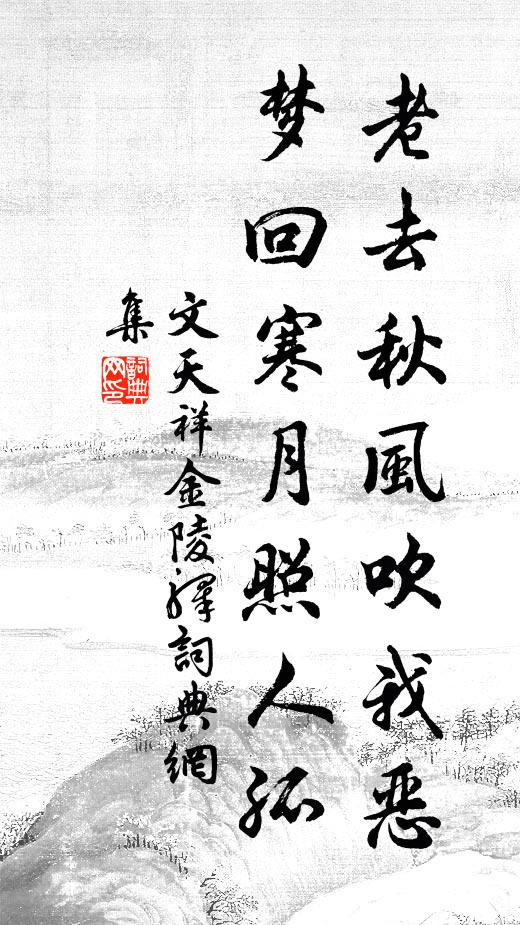 老去秋風吹我惡
梦回寒月照人孤
文天祥金陵驛詞典網
集
詞典网印